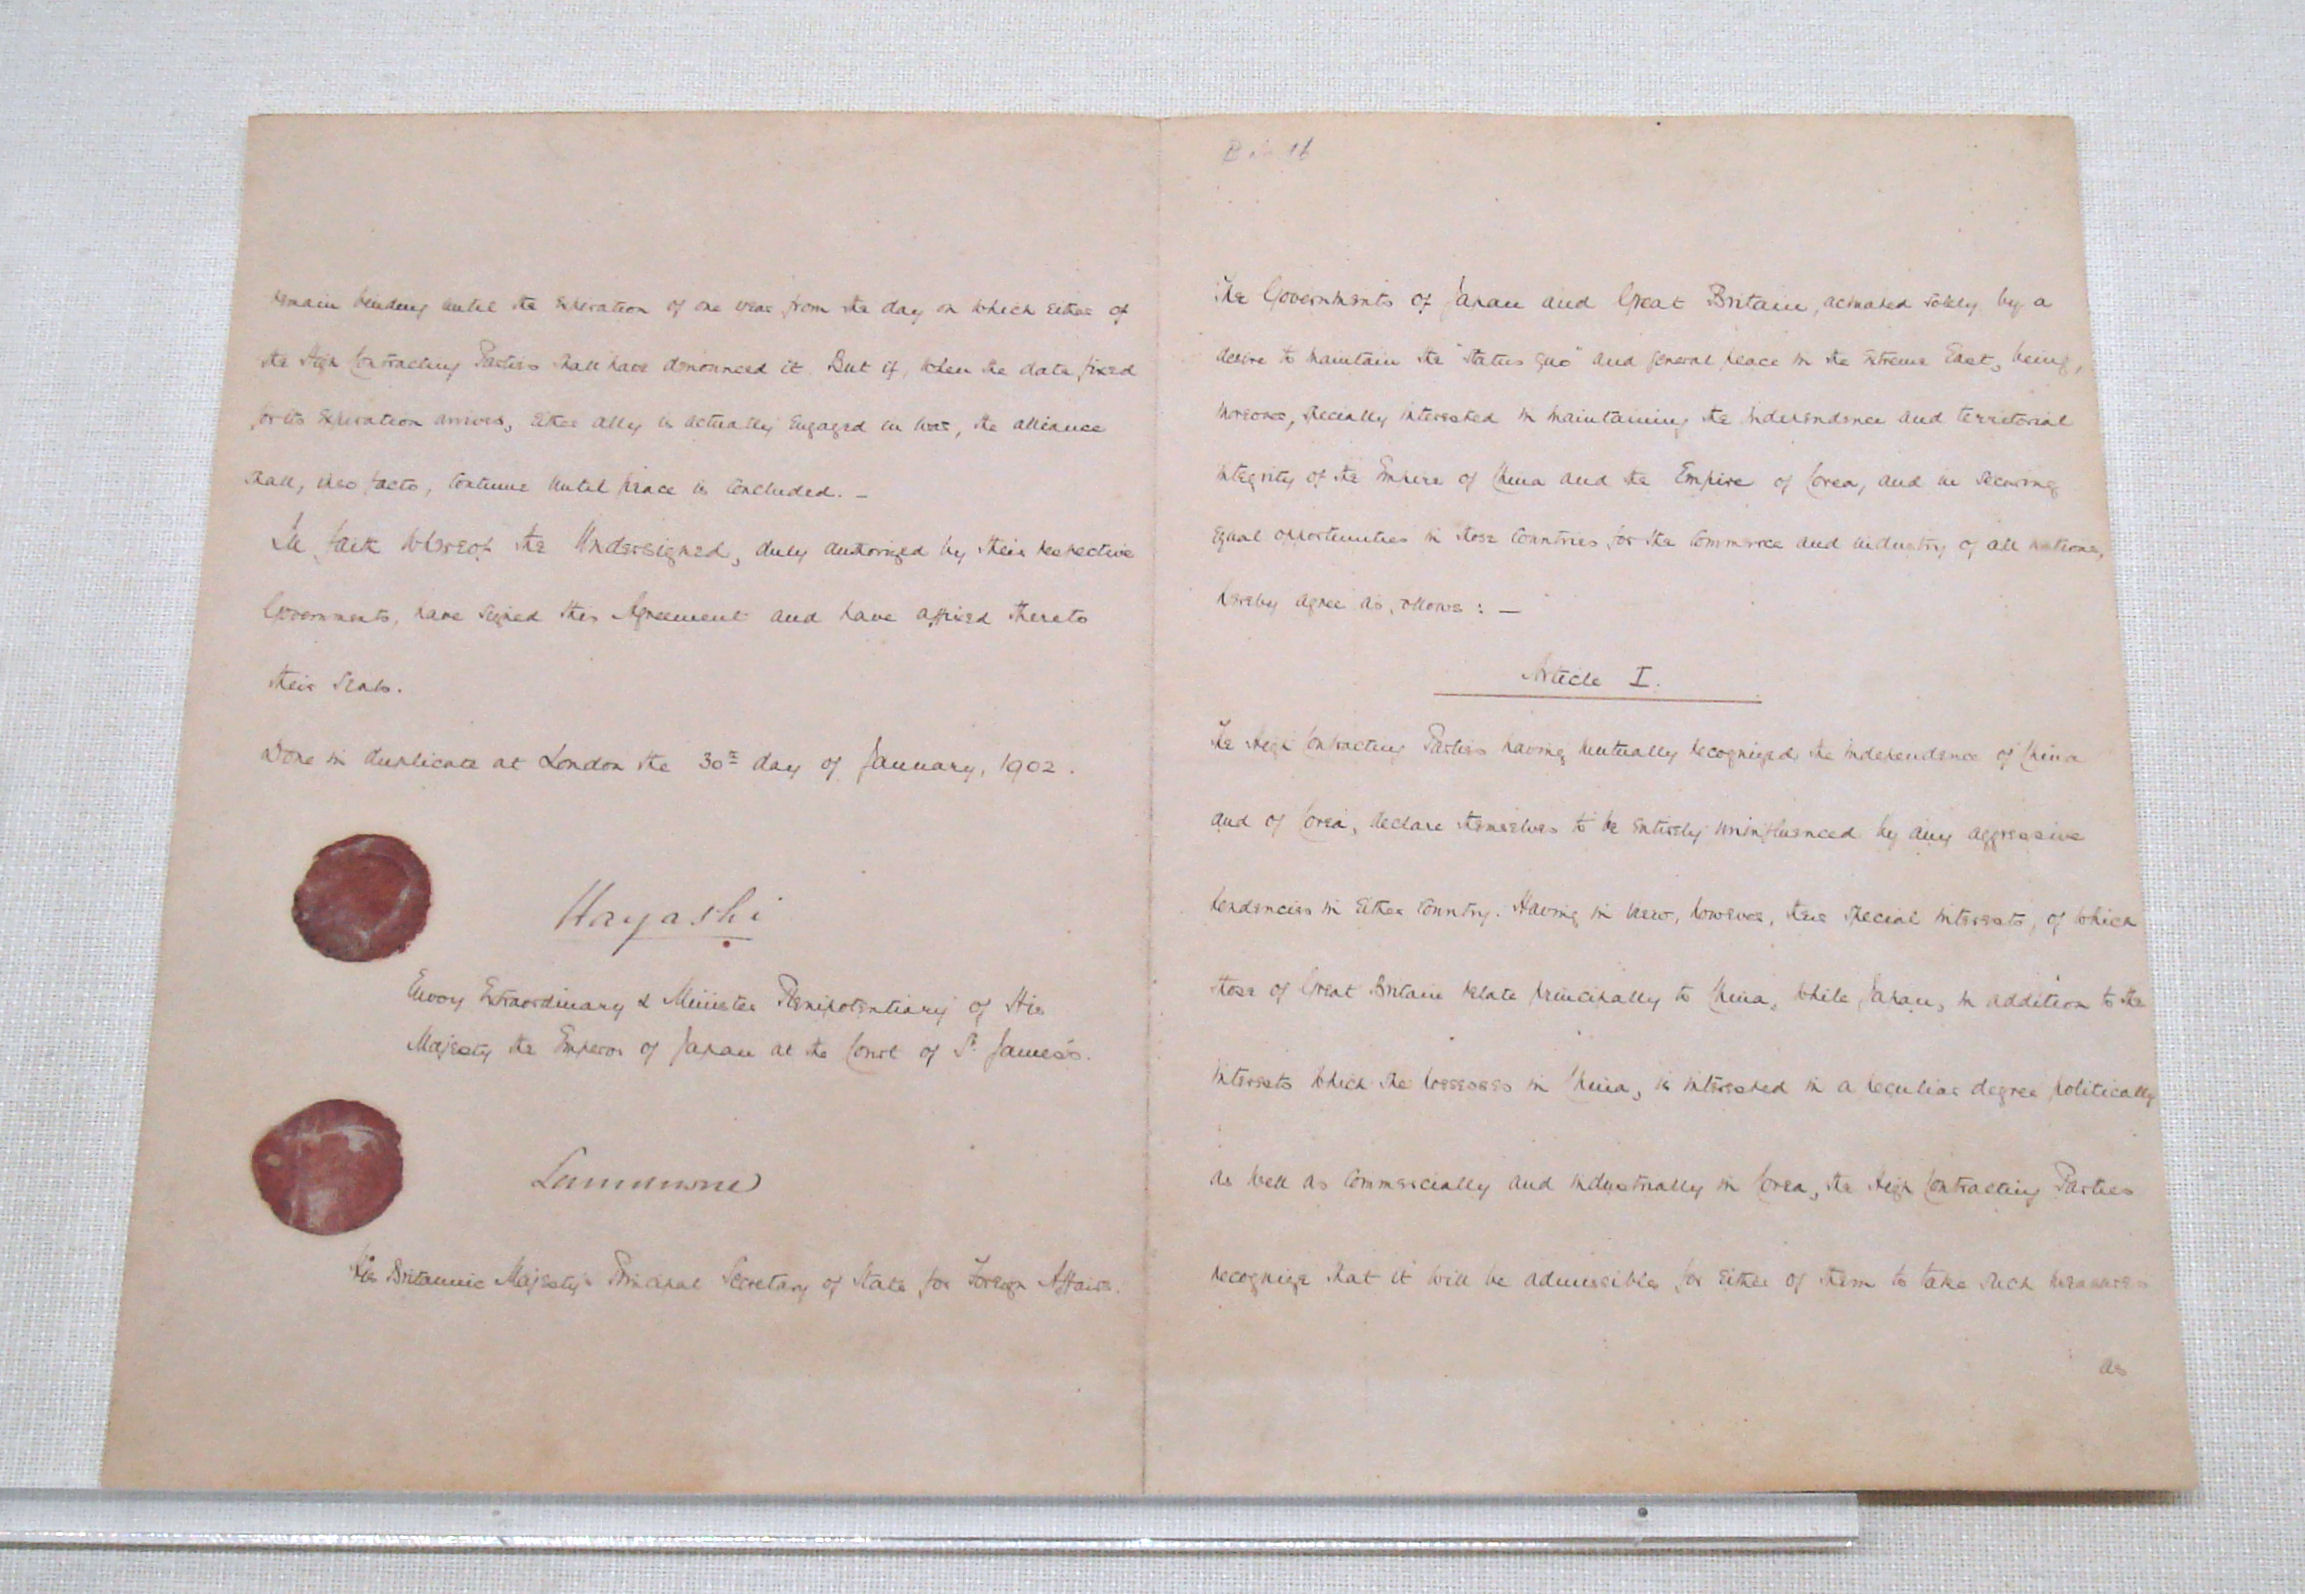 remain binding until the expiration of one year from the day on which either of
the High Contracting Parties shall have denounced it. But if, when the date fixed
for its expiration arrives, either ally is actually engaged in war, the alliance
shall, ipso facto, continue until peace is concluded. —
In faith whereof the Undersigned, duly authorized by their respective
Governments, have signed this Agreement and have affixed thereto
their Seals.
Done in duplicate at London the 30th day of January, 1902.
Hayashi
Envoy Extraordinary & Minister Plenipotentiary of His
Majesty the Emperor of Japan at the Court of St. James's.
Lansdowne
His Britannic Majesty's Principal Secretary of State for Foreign Affairs.
The Governments of Japan and Great Britain, actuated solely by a
desire to maintain the "status quo" and general peace in the Extreme East, being,
moreover, specially interested in maintaining the independence and territorial
integrity of the Empire of China and the Empire of Corea, and in securing
equal opportunities in those Countries for the Commerce and industry of all nations,
hereby agree as follows : —
Article I.
The High Contracting Parties having mutually recognized the independence of China
and of Corea, declare themselves to be entirely uninfluenced by any aggressive
tendencies in either Country. Having in view, however, their special interests, of which
those of Great Britain relate principally to China, while Japan, in addition to the
interests which she possesses in China, is interested in a peculiar degree politically
as well as commercially and industrially in Corea, the High Contracting Parties
recognize that it will be admissible for either of them to take such measures
as